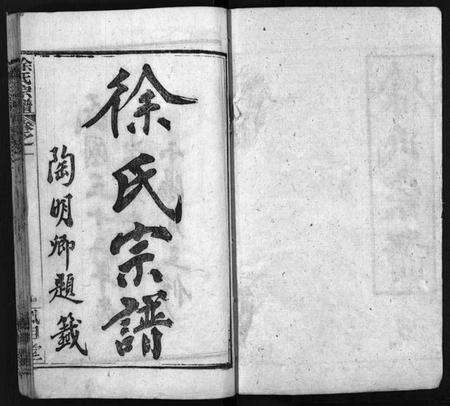 徐氏宗譜
陶明卿題籤
徐氏宗譜卷之一